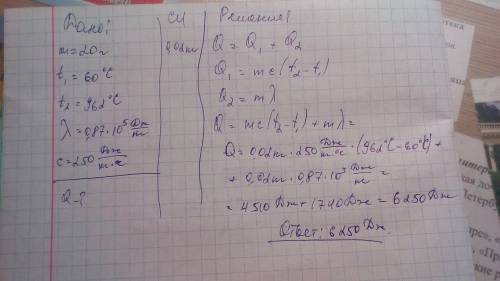 Дано:
m = 20 г
t₁ = 60 °C
t₂ = 962 °C
λ = 0,87 · 10⁵ Дж/кг
c = 250 Дж/кг·°C
Q - ?
СИ
0,02 кг
Решение:
Q = Q₁ + Q₂
Q₁ = mc(t₂ - t₁)
Q₂ = mλ
Q = mc(t₂ - t₁) + mλ =
Q = 0,02 кг · 250 Дж/кг·°C · (962 °C - 60 °C) +
+ 0,02 кг · 0,87 · 10⁵ Дж/кг =
= 4510 Дж + 1740 Дж = 6250 Дж
Ответ: 6250 Дж.